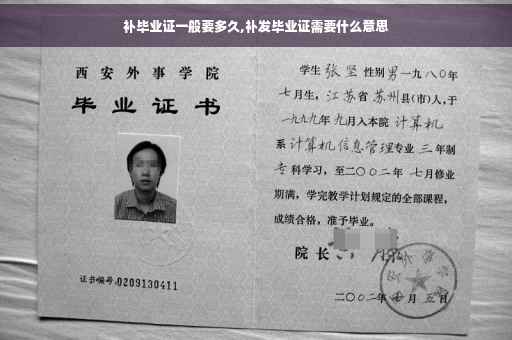 补毕业证一般要多久,补发毕业证需要什么意思
西安外事学院
毕业证书
证书编号:0209130411
学生 张坚 性别 男 一九八〇年
七月生, 江苏省 苏州县(市)人, 于
一九九九年 九月入本院 计算机
系 计算机信息管理专业 三年制
专科学习, 至二〇〇二年 七月修业
期满, 学完教学计划规定的全部课程,
成绩合格, 准予毕业。
院长
二〇〇二年 七月 五日